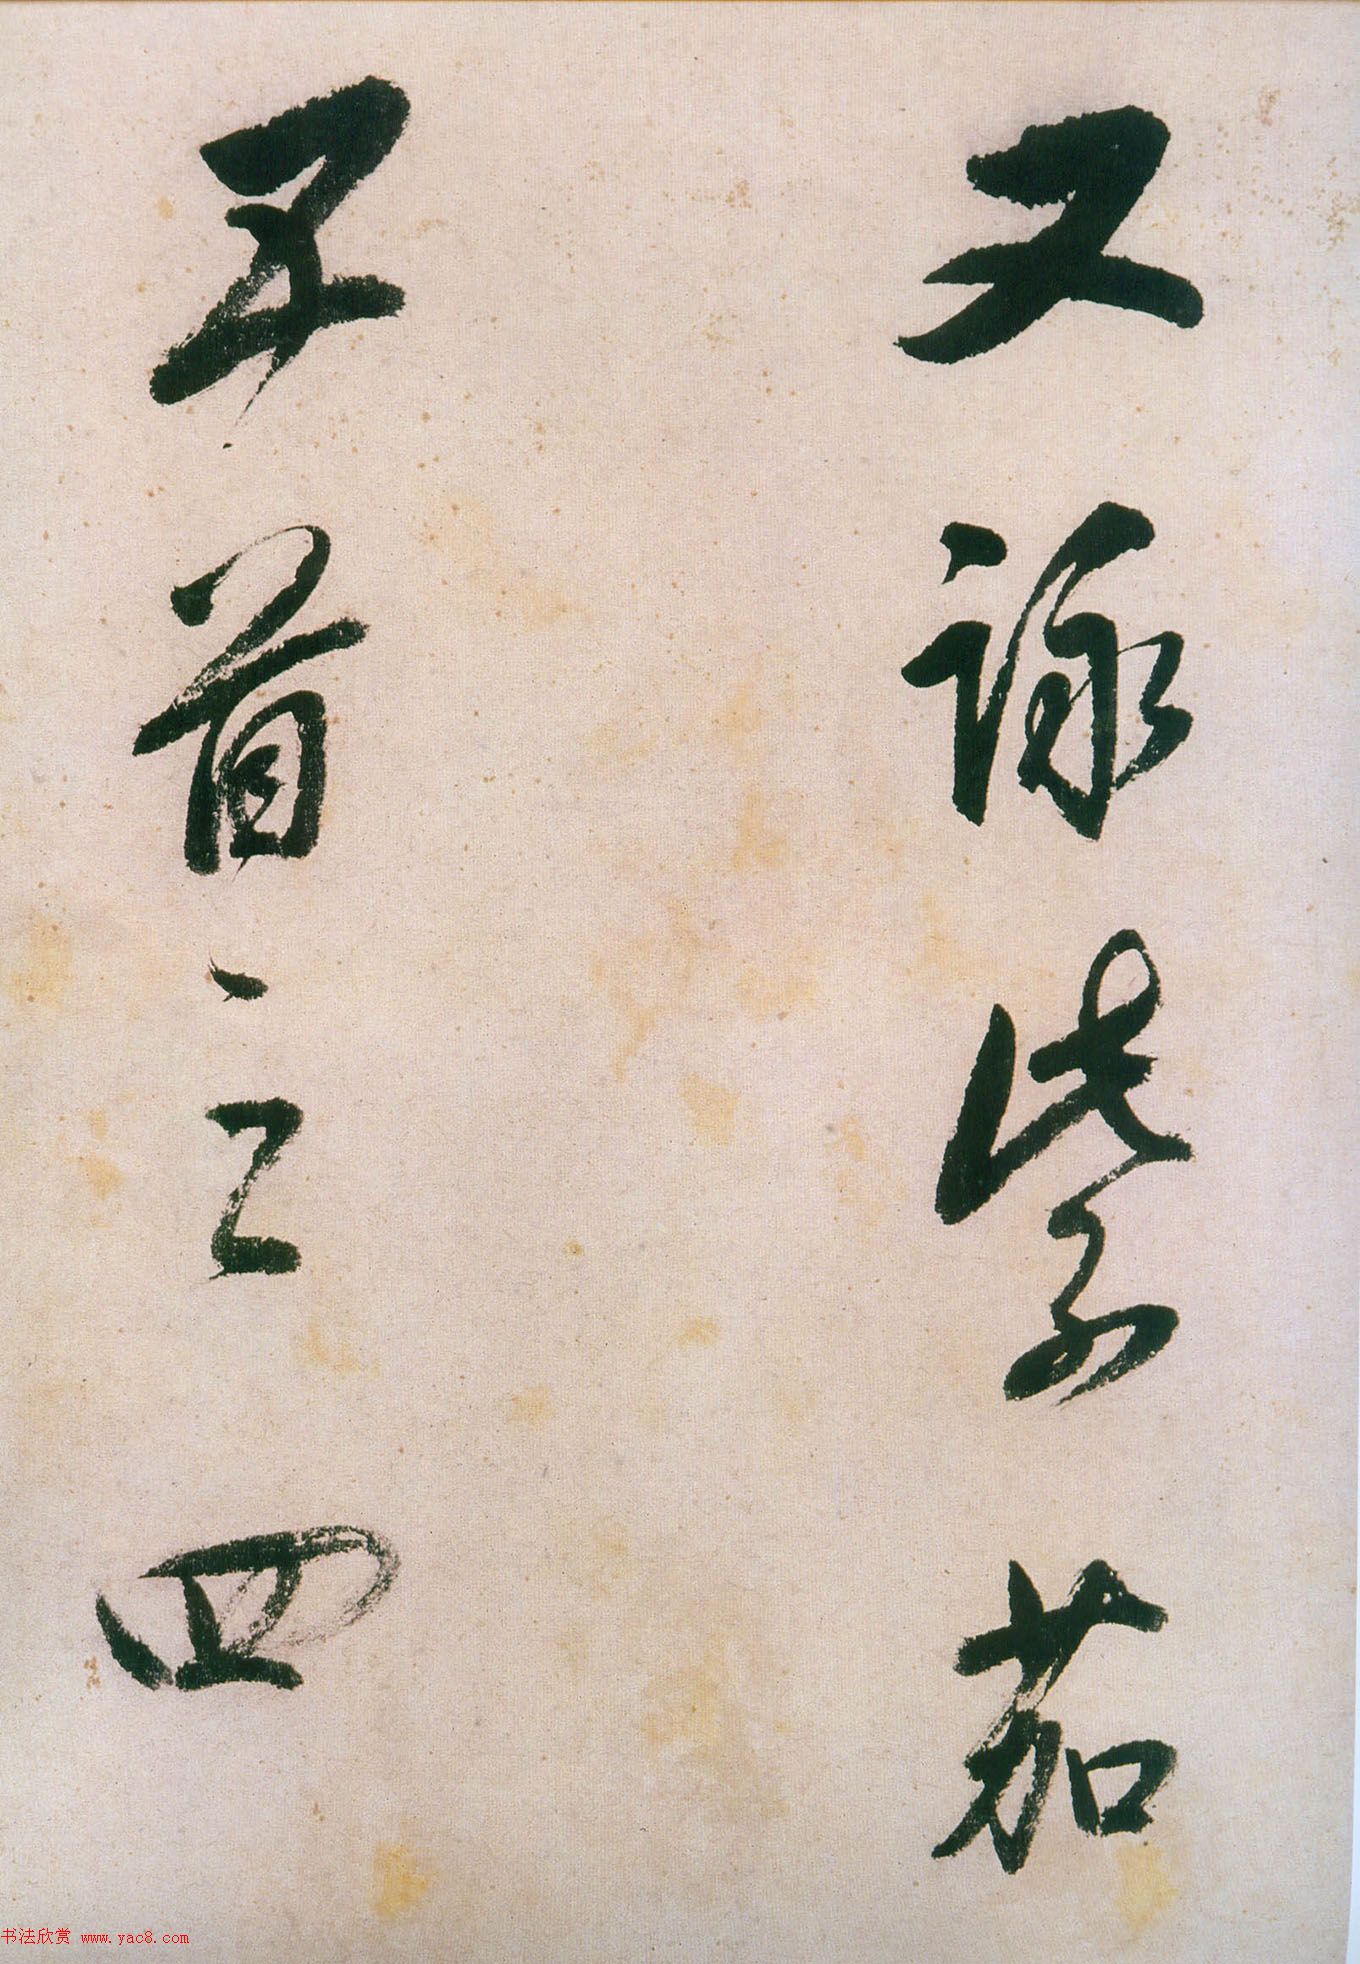 又詠紫茄
五首之四
书法欣赏 www.yac8.com